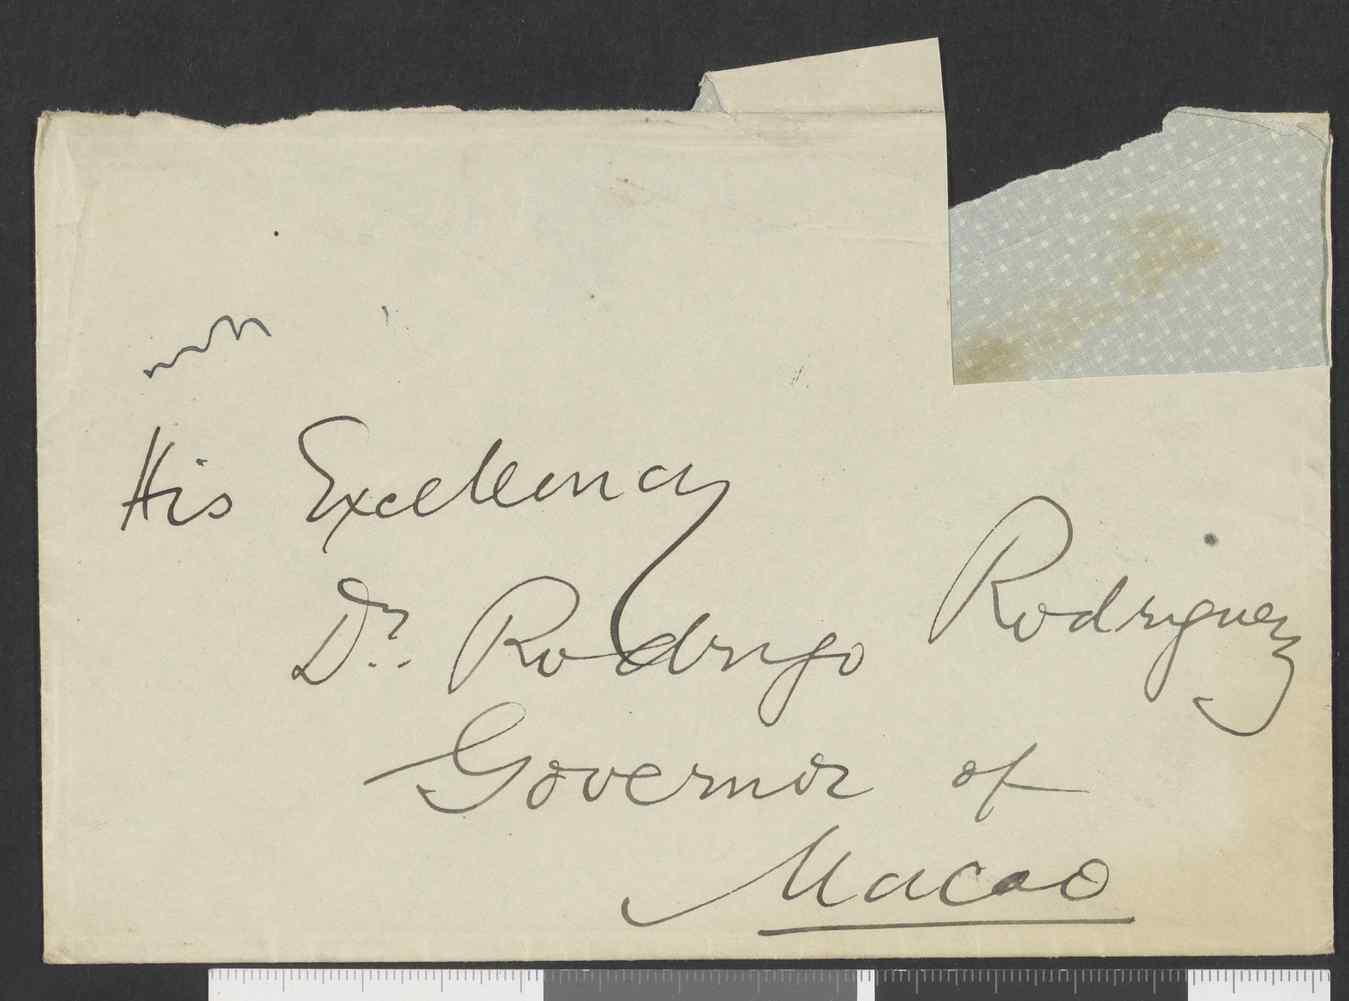 His Excellency
Dr. Rodrigo Rodriguez
Governor of
Macao